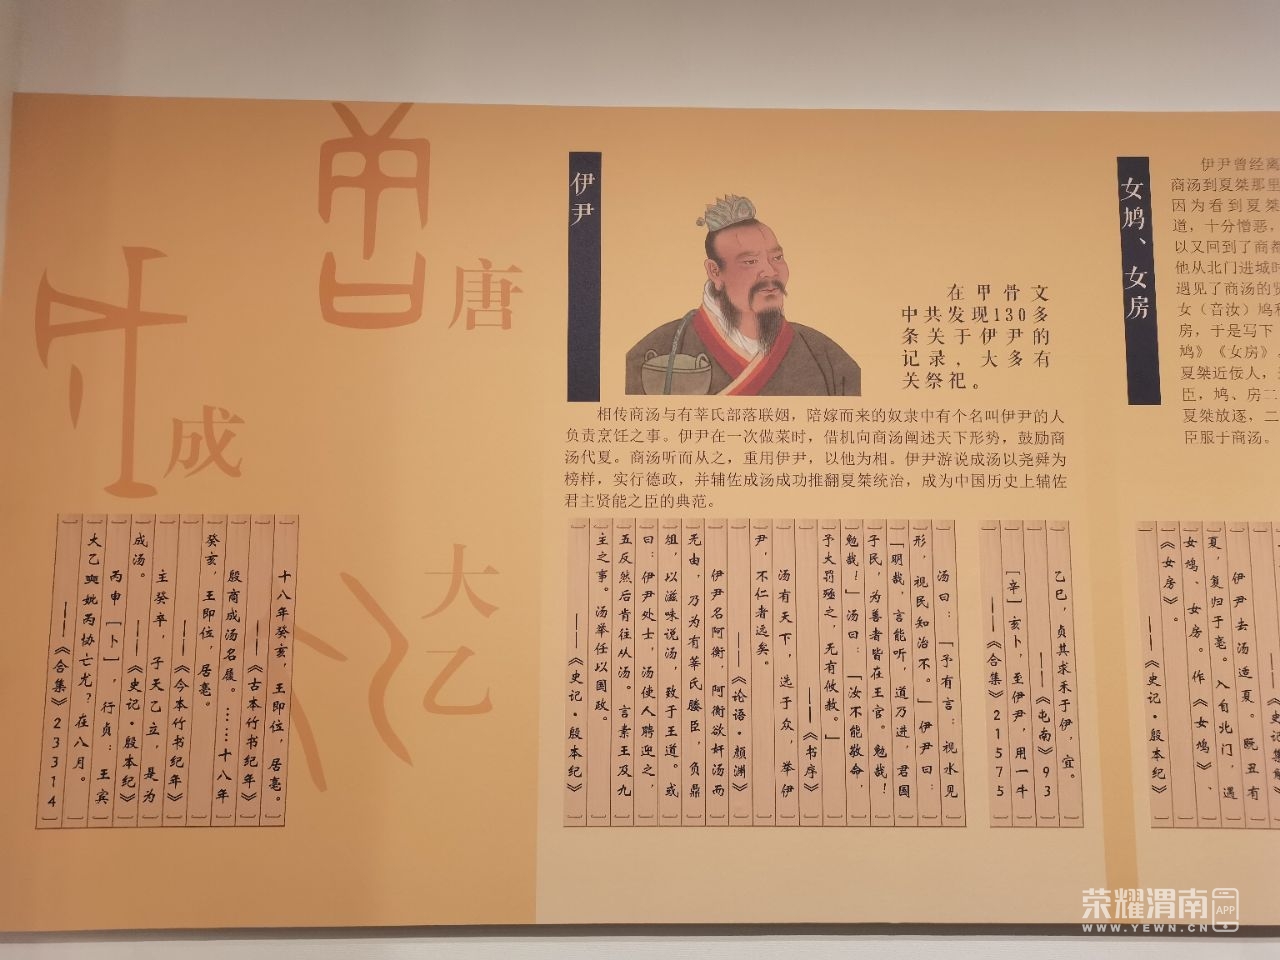 唐
成
大乙
十八年癸亥，王即位，居亳。
——《古本竹书纪年》
殷商成汤名履。……十八年
癸亥，王即位，居亳。
——《今本竹书纪年》
主癸卒，子天乙立，是为
成汤。——《史记·殷本纪》
丙申［卜］，行贞：王宾
大乙奭妣丙协亡尤？在八月。
——《合集》23314
伊尹
在甲骨文
中共发现130多
条关于伊尹的
记录，大多有
关祭祀。
相传商汤与有莘氏部落联姻，陪嫁而来的奴隶中有个名叫伊尹的人
负责烹饪之事。伊尹在一次做菜时，借机向商汤阐述天下形势，鼓励商
汤代夏。商汤听而从之，重用伊尹，以他为相。伊尹游说成汤以尧舜为
榜样，实行德政，并辅佐成汤成功推翻夏桀统治，成为中国历史上辅佐
君主贤能之臣的典范。
乙巳，贞其求禾于伊，宜。
——《屯南》93
［辛］亥卜，至伊尹，用一牛
——《合集》21575
汤曰：「予有言：视水见
形，视民知治不。」伊尹曰：
「明哉，言能听，道乃进，君国
子民，为善者皆在王官。勉哉！
勉哉！」汤曰：「汝不能敬命，
予大罚殛之，无有攸赦。」
——《书序》
汤有天下，选于众，举伊
尹，不仁者远矣。
——《论语·颜渊》
伊尹名阿衡，阿衡欲奸汤而
无由，乃为有莘氏媵臣，负鼎
俎，以滋味说汤，致于王道。或
曰：伊尹处士，汤使人聘迎之，
五反然后肯往从汤。言素王及九
主之事。汤举任以国政。
——《史记·殷本纪》
女鸠、女房
伊尹曾经离
商汤到夏桀那里
因为看到夏桀
道，十分憎恶，
以又回到了商都
他从北门进城时
遇见了商汤的贤
女（音汝）鸠和
房，于是写下
鸠》《女房》。
夏桀近佞人，
臣，鸠、房二
夏桀放逐，二
臣服于商汤。
伊尹去汤适夏。既丑有
夏，复归于亳。入自北门，遇
女鸠、女房。作《女鸠》、
《女房》。
——《史记·殷本纪》
荣耀渭南
APP
WWW.YEWN.CN